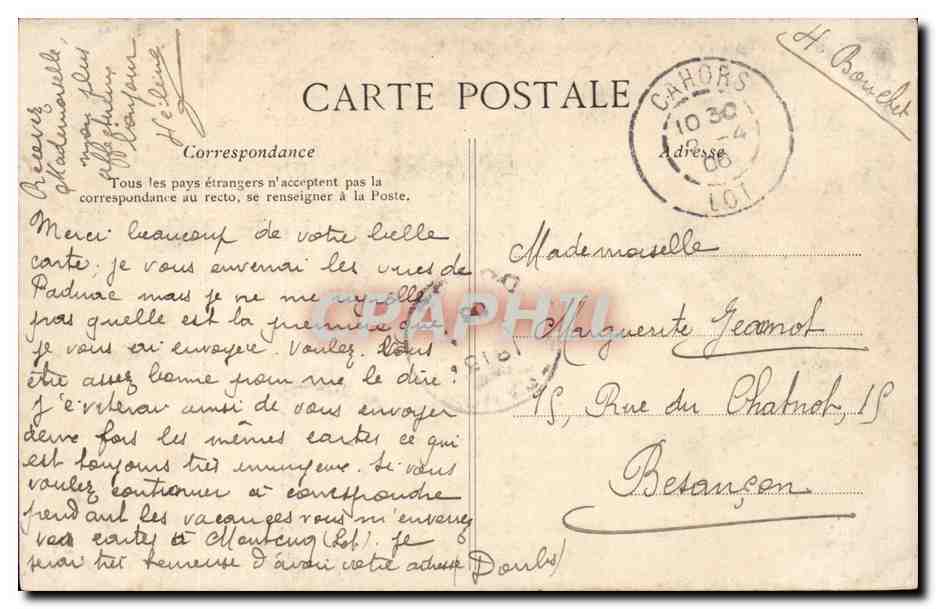 H. Bouschet
Recevez
Mademoiselle,
mon plus
affectueux
bonjour
Hélène
CARTE POSTALE
CAHORS
10 30
-4
06
LOT
Correspondance
Adresse
Tous les pays étrangers n'acceptent pas la
correspondance au recto, se renseigner à la Poste.
Merci beaucoup de votre belle
carte; je vous enverrai les vues de
mais je ne me rappelle
pas quelle est la première que
je vous ai envoyée. Voulez Vous
être assez bonne pour me le dire?
J'éviterai ainsi de vous envoyer
deux fois les mêmes cartes ce qui
est toujours très ennuyeux. Si vous
voulez continuer à correspondre
pendant les vacances vous m'enverrez
vos cartes à Montcuq (Lot). Je
serai très heureuse d'avoir votre adresse
Mademoiselle
Marguerite
15, Rue du 15
Besançon
(Doubs)
CRAPHIL